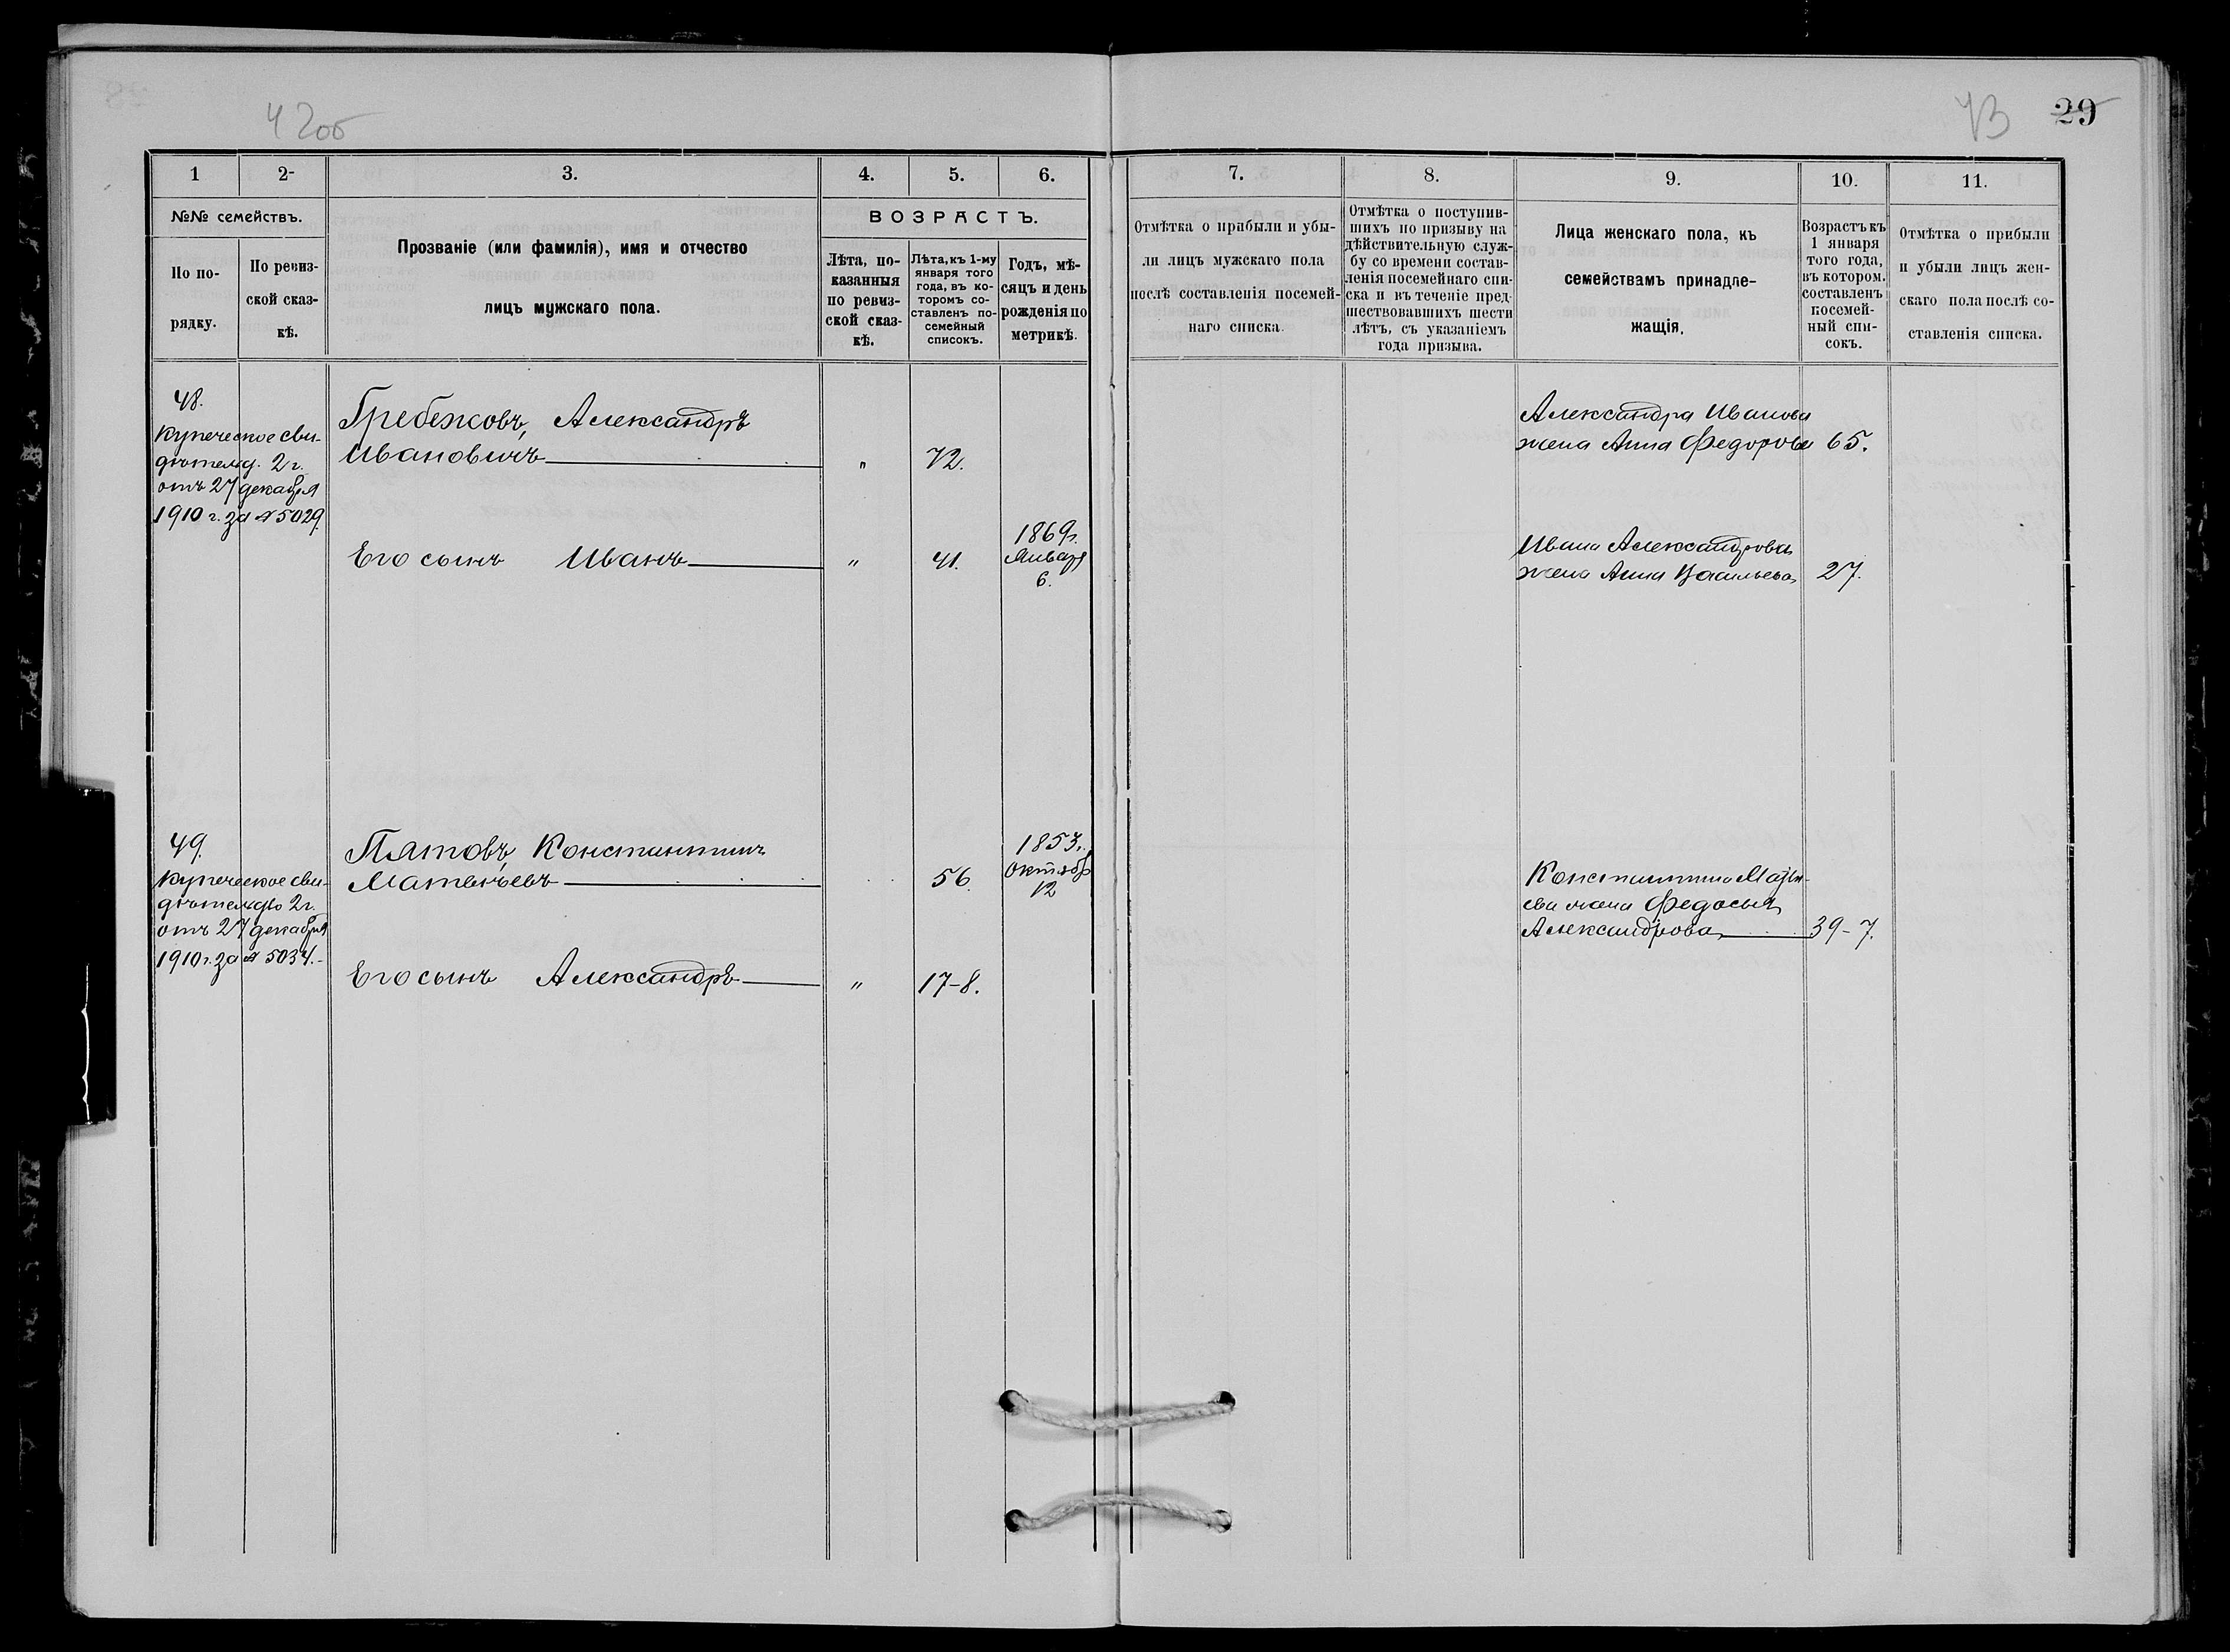 42об
43 29
1 2- 3. 4. 5. 6.
7. 8. 9. 10. 11.
№№ семействъ.
По по-
рядку.
По ревиз-
ской сказ-
кѣ.
Прозваніе (или фамилія), имя и отчество
лицъ мужскаго пола.
ВОЗРАСТЪ.
Лѣта, по-
казанныя
по ревиз-
ской сказ-
кѣ.
Лѣта, къ 1-му
января того
года, въ ко-
торомъ со-
ставленъ по-
семейный
списокъ.
Годъ, мѣ-
сяцъ и день
рожденія по
метрикѣ.
Отмѣтка о прибыли и убы-
ли лицъ мужскаго пола
послѣ составленія посемей-
наго списка.
Отмѣтка о поступив-
шихъ по призыву на
дѣйствительную служ-
бу со времени состав-
ленія посемейнаго спи-
ска и въ теченіе пред-
шествовавшихъ шести
лѣтъ, съ указаніемъ
года призыва.
Лица женскаго пола, къ
семействамъ принадле-
жащія.
Возрастъ къ
1 января
того года,
въ котором.
составленъ
посемей-
ный спи-
сокъ.
Отмѣтка о прибыли
и убыли лицъ жен-
скаго пола послѣ со-
ставленія списка.
48.
Купеческое сви-
дѣтельд. 2 г.
отъ 27 декабря
1910 г. за № 5029.
Гребежовъ, Александръ
Ивановичъ " 72.
Александра Иванова
жена Анна Федорова 65.
Его сынъ Иванъ " 41.
1869г.
Январь
6.
Ивана Александрова
жена Анна Васильева 27.
49.
Купеческое сви-
дѣтельдво 2г.
отъ 27 декабря
1910 г. за № 5034.-
Пятовъ, Константинъ
Матвѣевъ 56.
1853г.
Октябр
12
Константина Матвѣ-
ева жена Федосья
Александрова 39-7.
Его сынъ Александръ " 17-8.